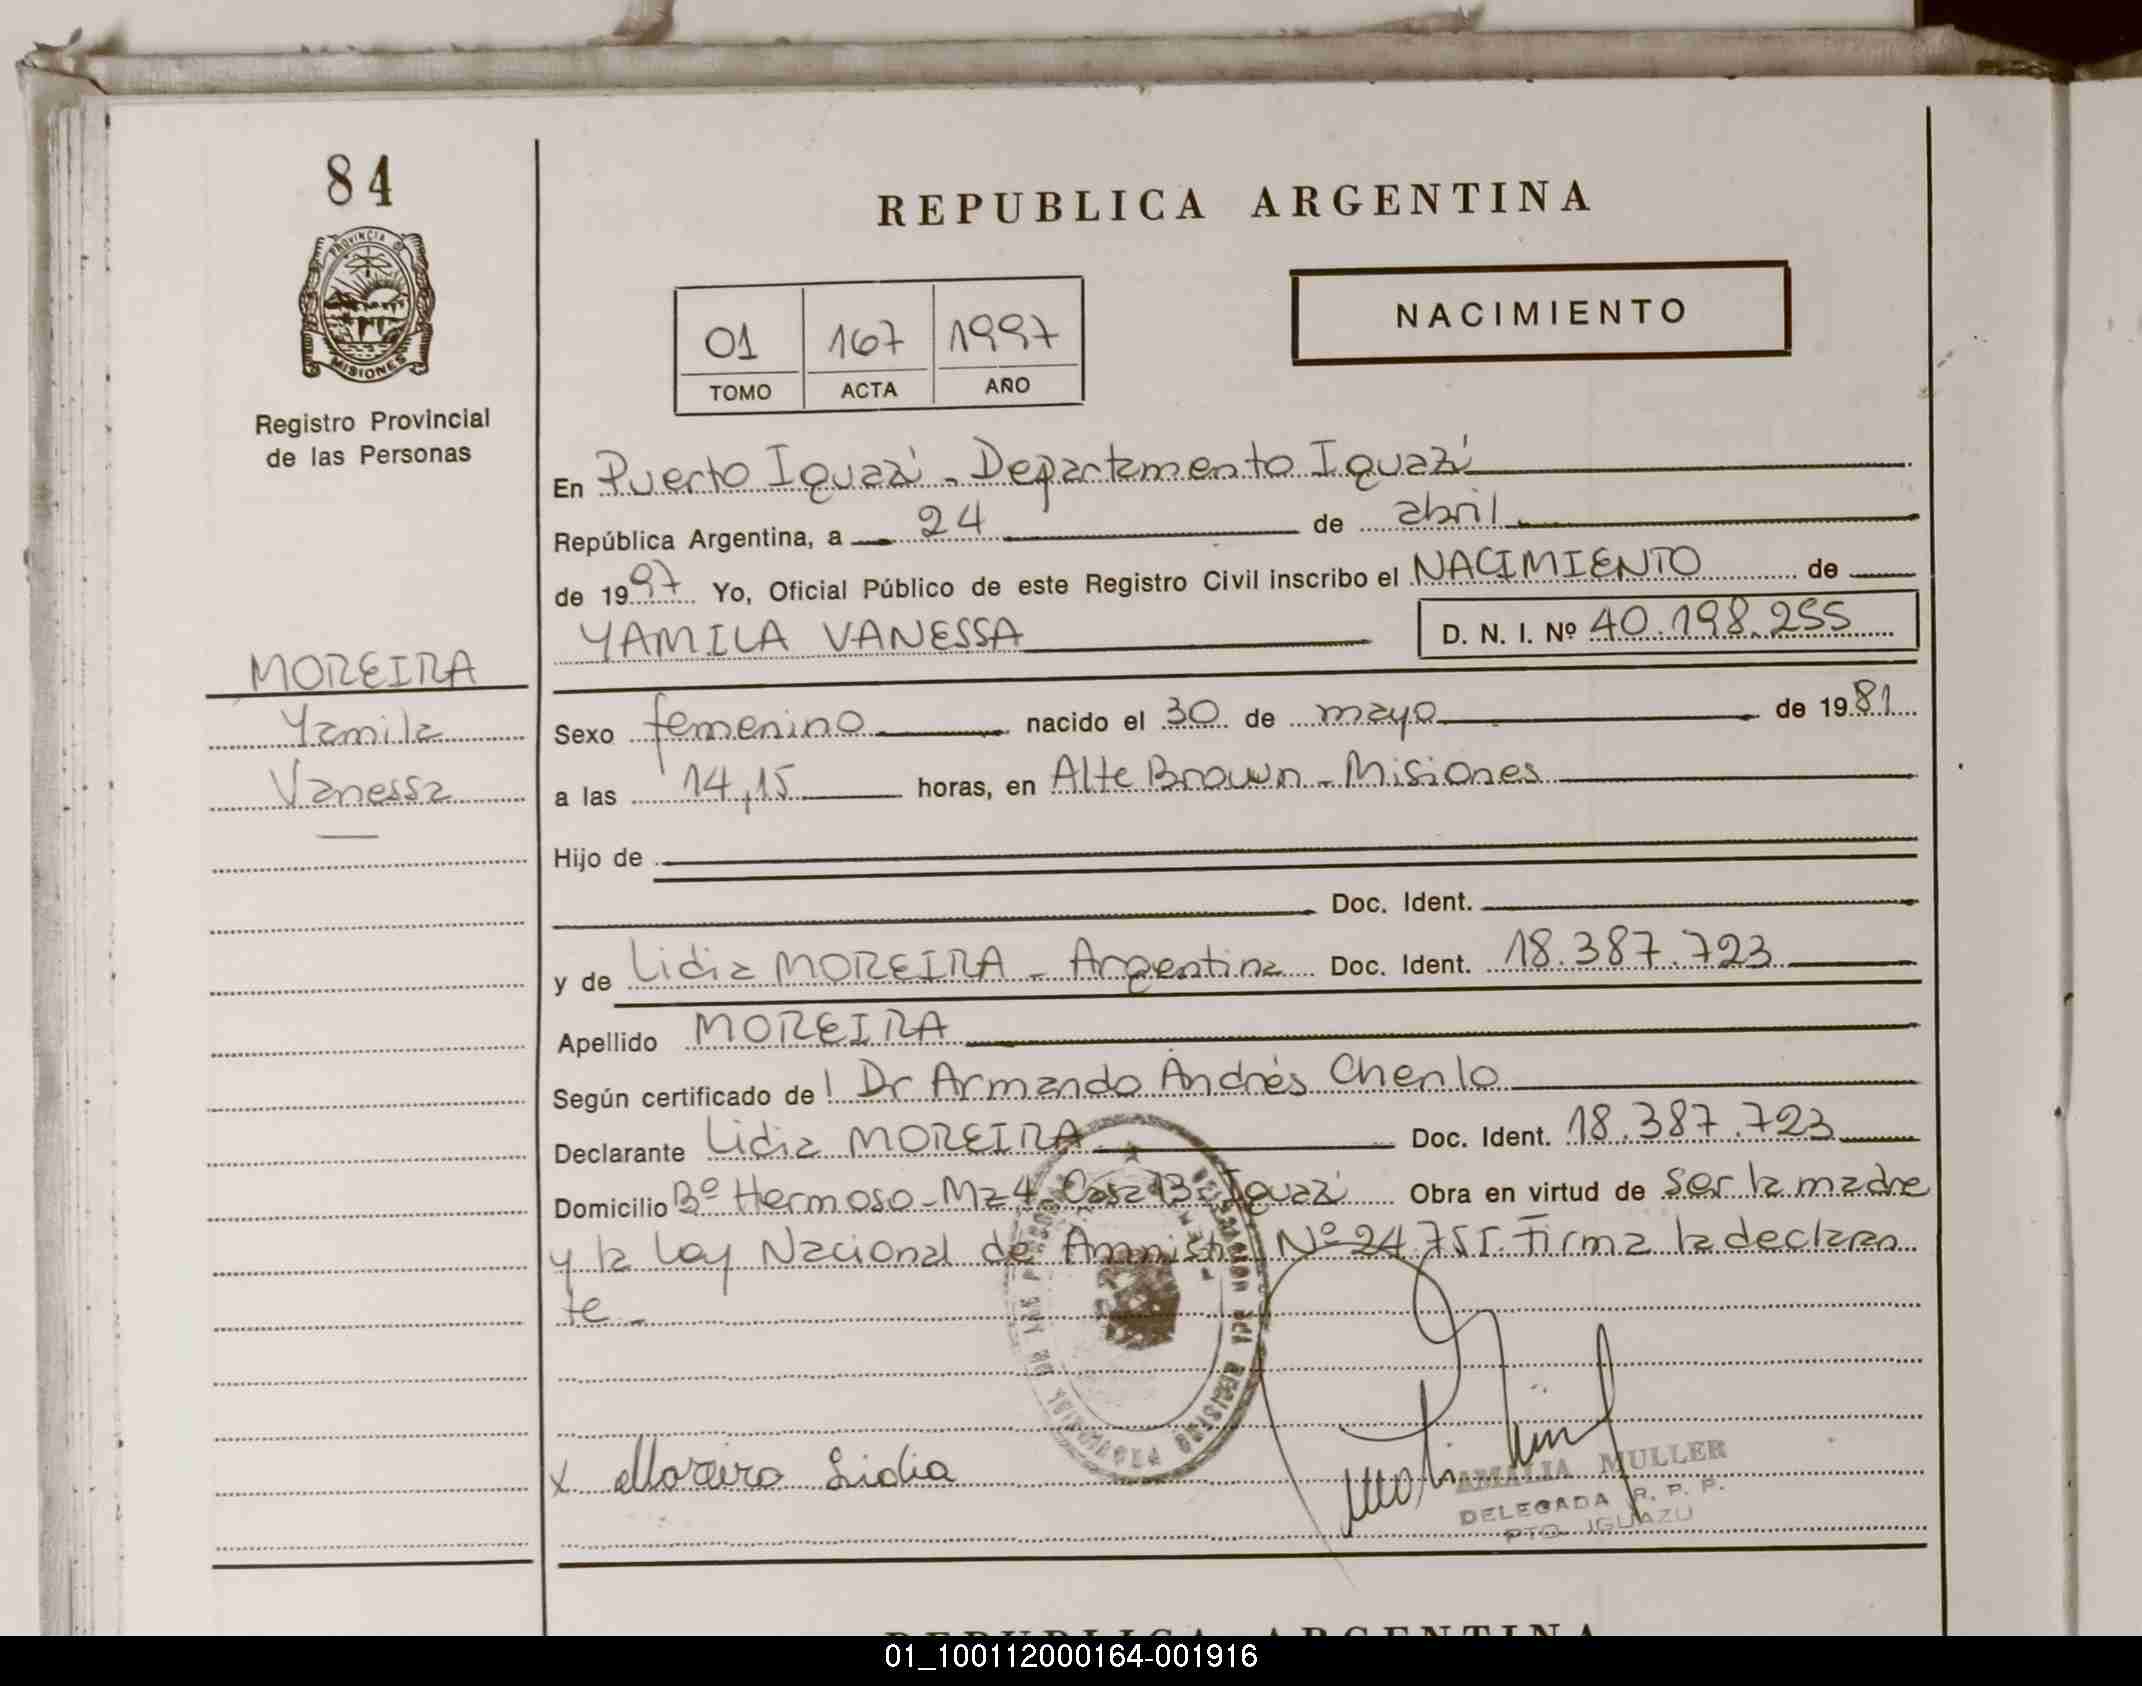 84
REPUBLICA ARGENTINA
PROVINCIA DE
MISIONES
Registro Provincial
de las Personas
01 167 1997
TOMO ACTA AÑO
NACIMIENTO
En Puerto Iguazú - Departamento Iguazú
República Argentina, a 24 de abril
de 1997 Yo, Oficial Público de este Registro Civil inscribo el NACIMIENTO de
YAMILA VANESSA D. N. I. Nº 40.198.255
MOREIRA
Yamila
Vanessa
Sexo femenino nacido el 30 de mayo de 1981
a las 14,15 horas, en Alte Brown - Misiones
Hijo de
Doc. Ident.
y de Lidia MOREIRA - Argentina Doc. Ident. 18.387.723
Apellido MOREIRA
Según certificado de l Dr Armando Andrés Chenlo
Declarante Lidia MOREIRA Doc. Ident. 18.387.723
Domicilio Bº Hermoso - Mz 4 Casa 13 - Iguazú Obra en virtud de ser la madre
y la Ley Nacional de Amnistia Nº 24.755. Firma la declaran
te -
x Moreira Lidia
AMALIA MULLER
DELEGADA R. P. P.
PTO. IGUAZU
REPUBLICA ARGENTINA
01_100112000164-001916